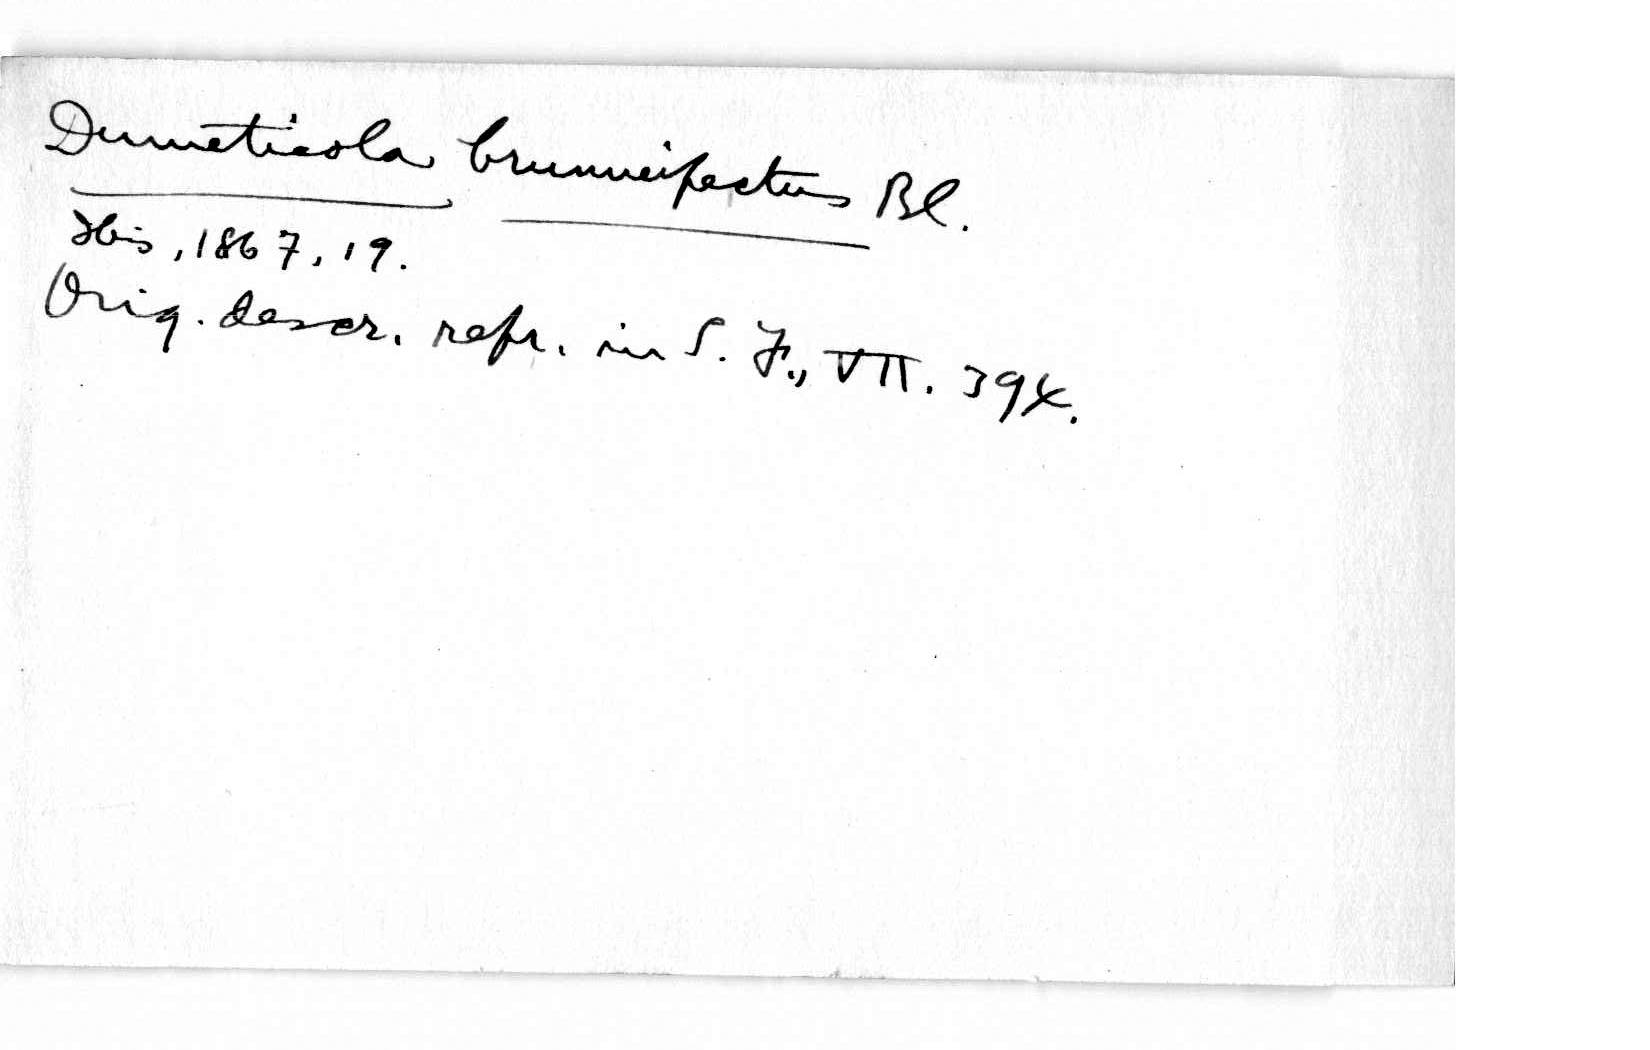 Dumeticola brunneipectus Bl.
Ibis, 1867, 19.
Orig. descr. repr. in S. F., VII. 394.